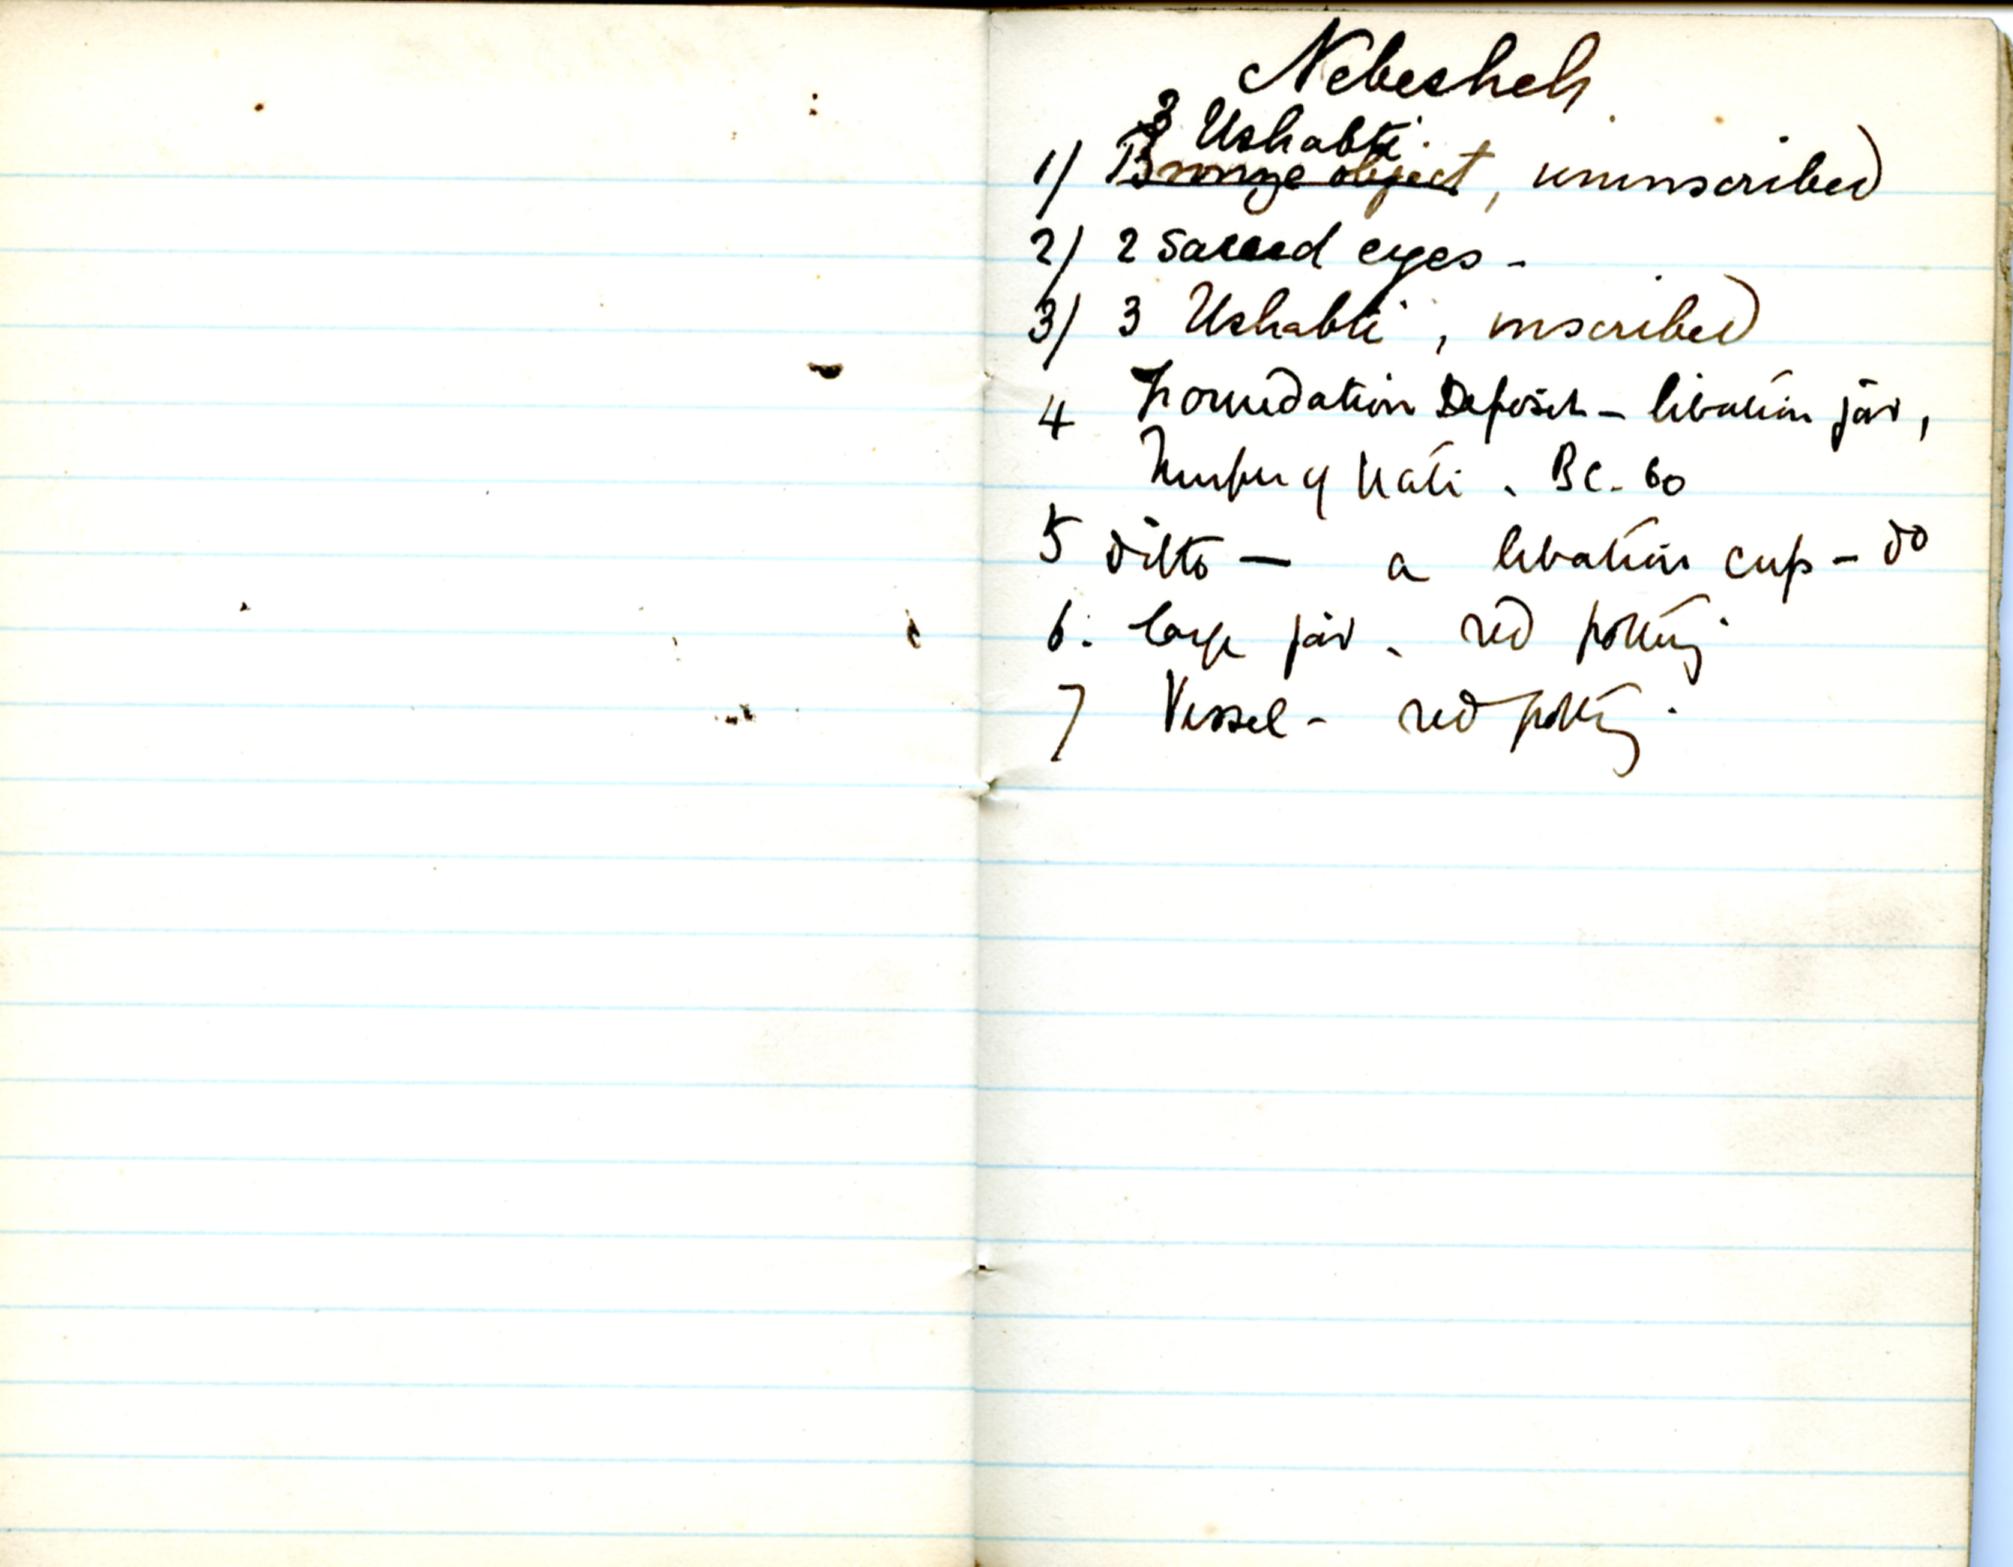 Nebesheh
3 Ushabti
1) Bronze object, uninscribed
2) 2 sacred eyes -
3) 3 Ushabti, inscribed
4 Foundation Deposit - libation jar,
Temple of Uati. BC. 60
5 ditto — a libation cup - do
6. large jar. red pottery.
7 Vessel - red pottery.